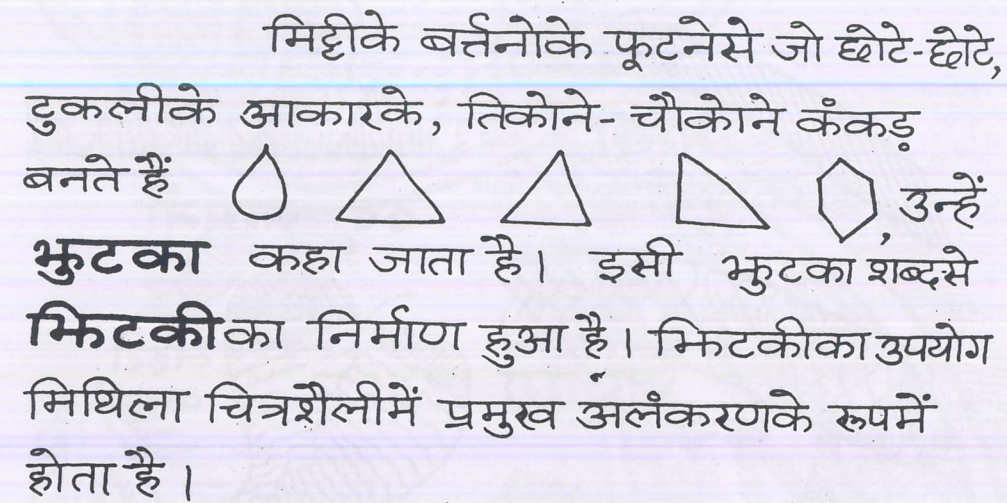 मिट्टीके बर्तनोके फूटनेसे जो छोटे-छोटे,
टुकलीके आकारके, तिकोने-चौकोने कंकड़
बनते हैं , उन्हें
झुटका कहा जाता है। इसी झुटका शब्दसे
झिटकीका निर्माण हुआ है। झिटकीका उपयोग
मिथिला चित्रशैलीमें प्रमुख अलंकरणके रूपमें
होता है।